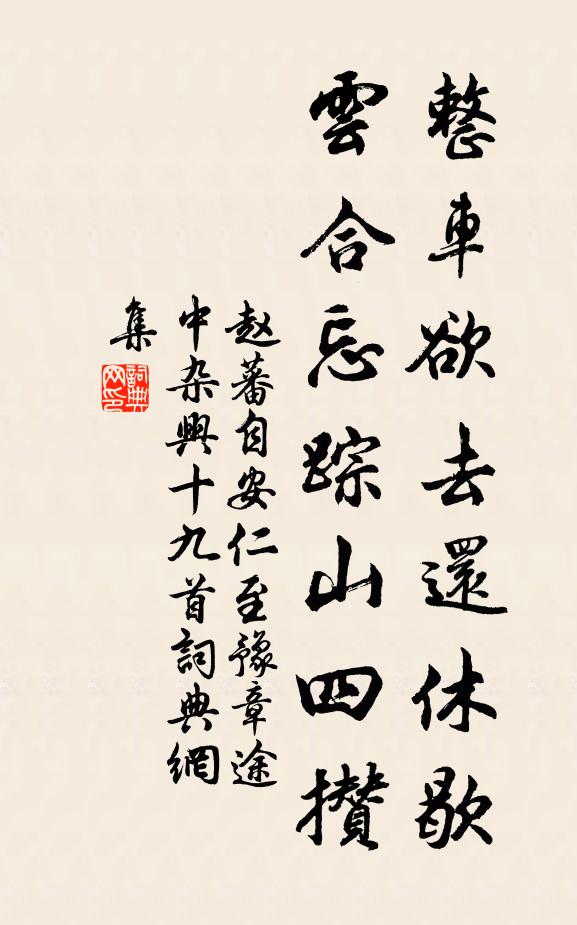 整車欲去還休歇
雲合忘踪山四攅
赵蕃自安仁至豫章途
中杂興十九首詞典網
集
詞典网印